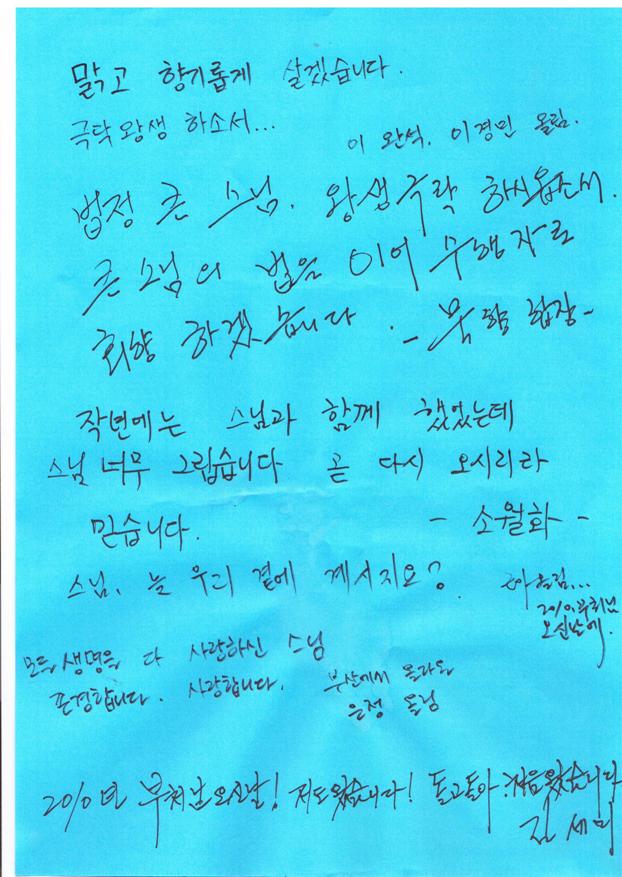 맑고 향기롭게 살겠습니다.
극락왕생 하소서...
이 완석. 이경민 올림.
법정 큰 스님. 왕생극락 하시옵소서.
큰 스님의 법을 이어 수행자로
회향 하겠습니다. - 합장 -
작년에는 스님과 함께 했었는데
스님 너무 그립습니다 곧 다시 오시리라
믿습니다. - 소월화 -
스님, 늘 우리 곁에 계시지요?
올림...
2010.부처님
오신날에.
모든 생명을 다 사랑하신 스님
존경합니다. 사랑합니다.
부산에서 올라온
은정 올림
2010년 부처님오신날! 저도왔습니다! 돌고돌아 처음왔습니다
김세미